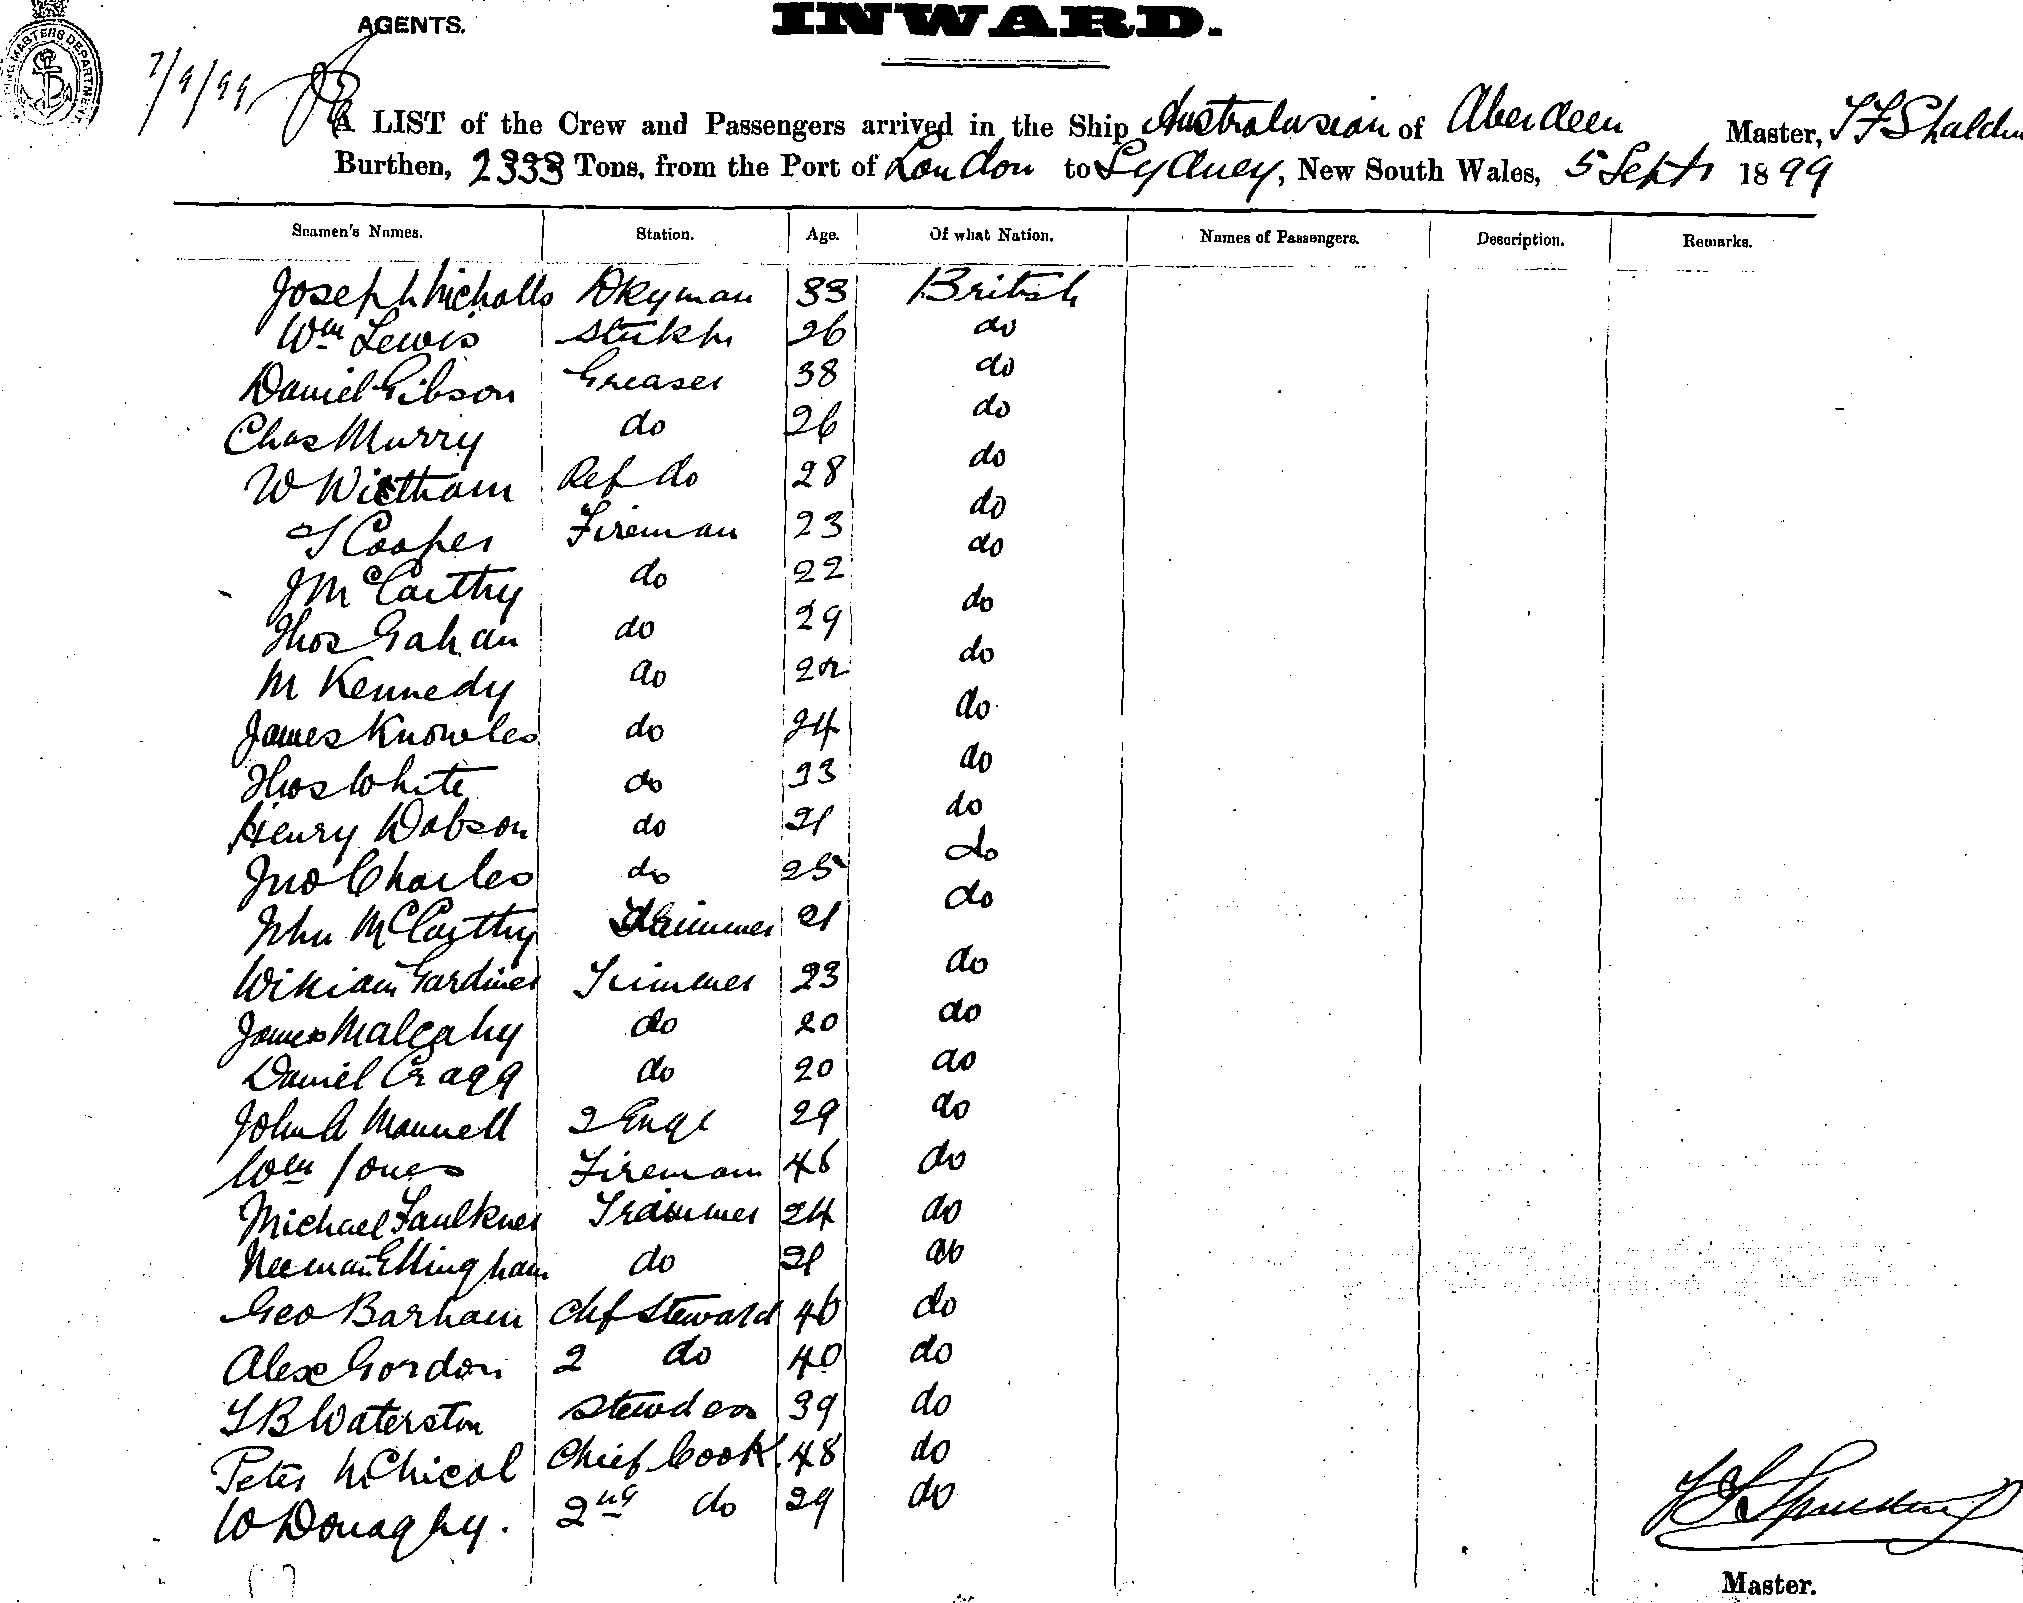 AGENTS.
INWARD.
7/9/99
A LIST of the Crew and Passengers arrived in the Ship Australasian of Aberdeen Master,
Burthen, 2333 Tons, from the Port of London to Sydney, New South Wales, 5 Sept 1899
Seamen's Names. Station. Age. Of what Nation. Names of Passengers. Description. Remarks.
Joseph Nicholls Dkyman 33 British
Wm Lewis 26 do
Daniel Gibson Greaser 38 do
Chas Murry do 26 do
W Wictham Ref do 28 do
T Cooper Fireman 23 do
J McCarthy do 22 do
Thos Gahan do 29 do
M Kennedy do 22 do
James Knowles do 24 do
Thos White do 23 do
Henry Dobson do 21 do
Jno Charles do 25 do
John McCarthy Trimmer 21 do
William Gardiner Trimmer 23 do
James Malcahy do 20 do
Daniel Cragg do 20 do
John A Mannell 2 Engr 29 do
Wm Jones Fireman 46 do
Michael Faulkner Trimmer 24 do
Ellingham do 21 do
Geo Barham Chf Steward 40 do
Alex Gordon 2 do 40 do
T B Waterston Stewdess 39 do
Peter McNicol Chief Cook 48 do
W Donaghy. 2nd do 29 do
Master.